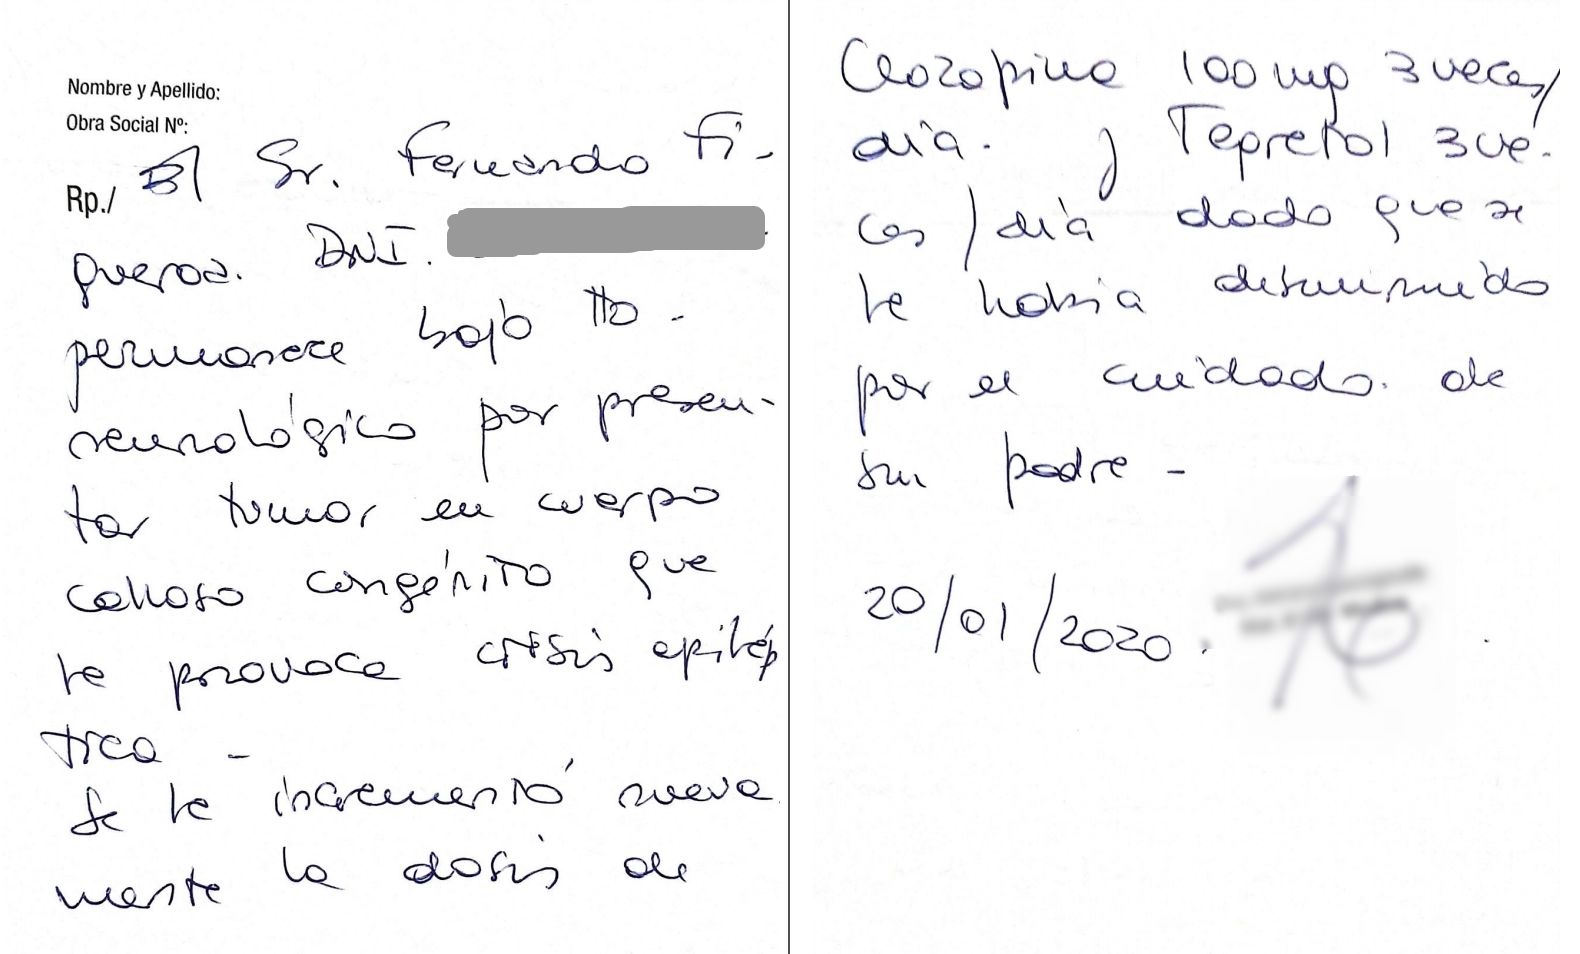 Nombre y Apellido:
Obra Social Nº:
Rp./ El Sr. Fernando Fi-
gueroa. DNI.
permanece bajo tto.
neurológico por presen-
tar tumor en cuerpo
calloso congénito que
le provoca crisis epilép
tica -
Se le incrementó nueva
mente la dosis de
Clozapina 100 mg 3 veces/
día. y Tegretol 3 ve-
ces/día dado que se
le había disminuido
por el cuidado de
su padre -
20/01/2020.